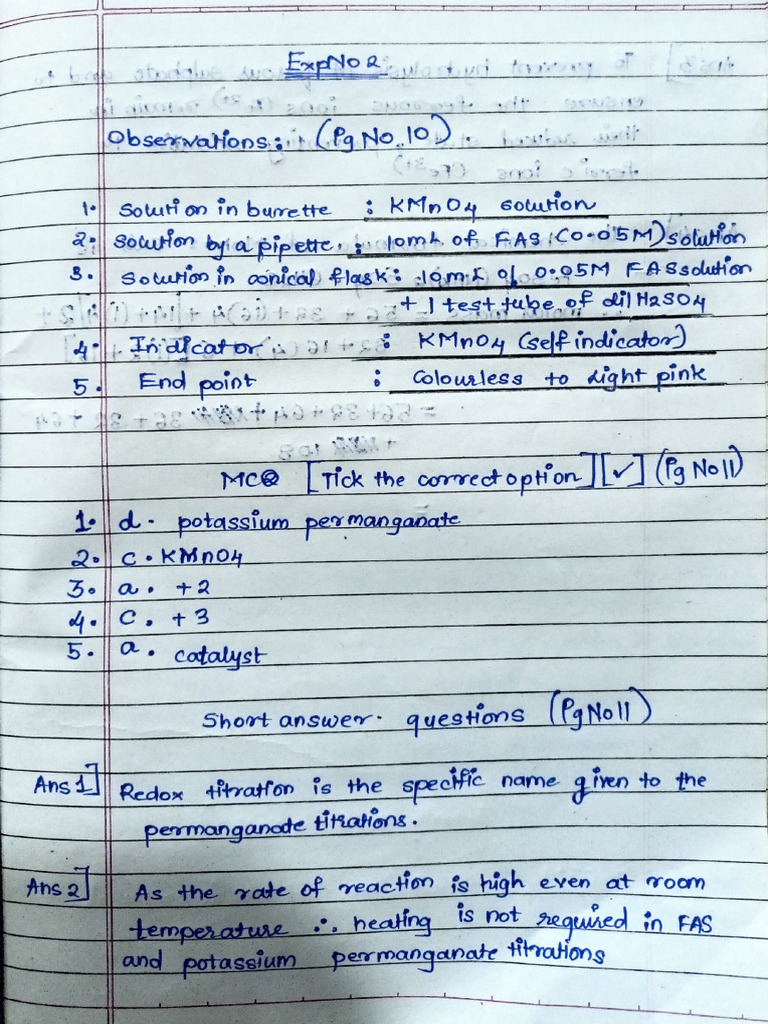 Exp No 2
Observations: (Pg No. 10)
1. Solution in burette : KMnO4 solution
2. Solution by a pipette : 10mL of FAS (0.05M) solution
3. Solution in conical flask : 10mL of 0.05M FAS solution
+ 1 test tube of dil H2SO4
4. Indicator : KMnO4 (self indicator)
5. End point : Colourless to light pink
MCQ [Tick the correct option] [✓] (Pg No 11)
1. d. potassium permanganate
2. c. KMnO4
3. a. +2
4. C. +3
5. a. catalyst
Short answer. questions (Pg No 11)
Ans 1] Redox titration is the specific name given to the
permanganate titrations.
Ans 2] As the rate of reaction is high even at room
temperature ∴ heating is not required in FAS
and potassium permanganate titrations